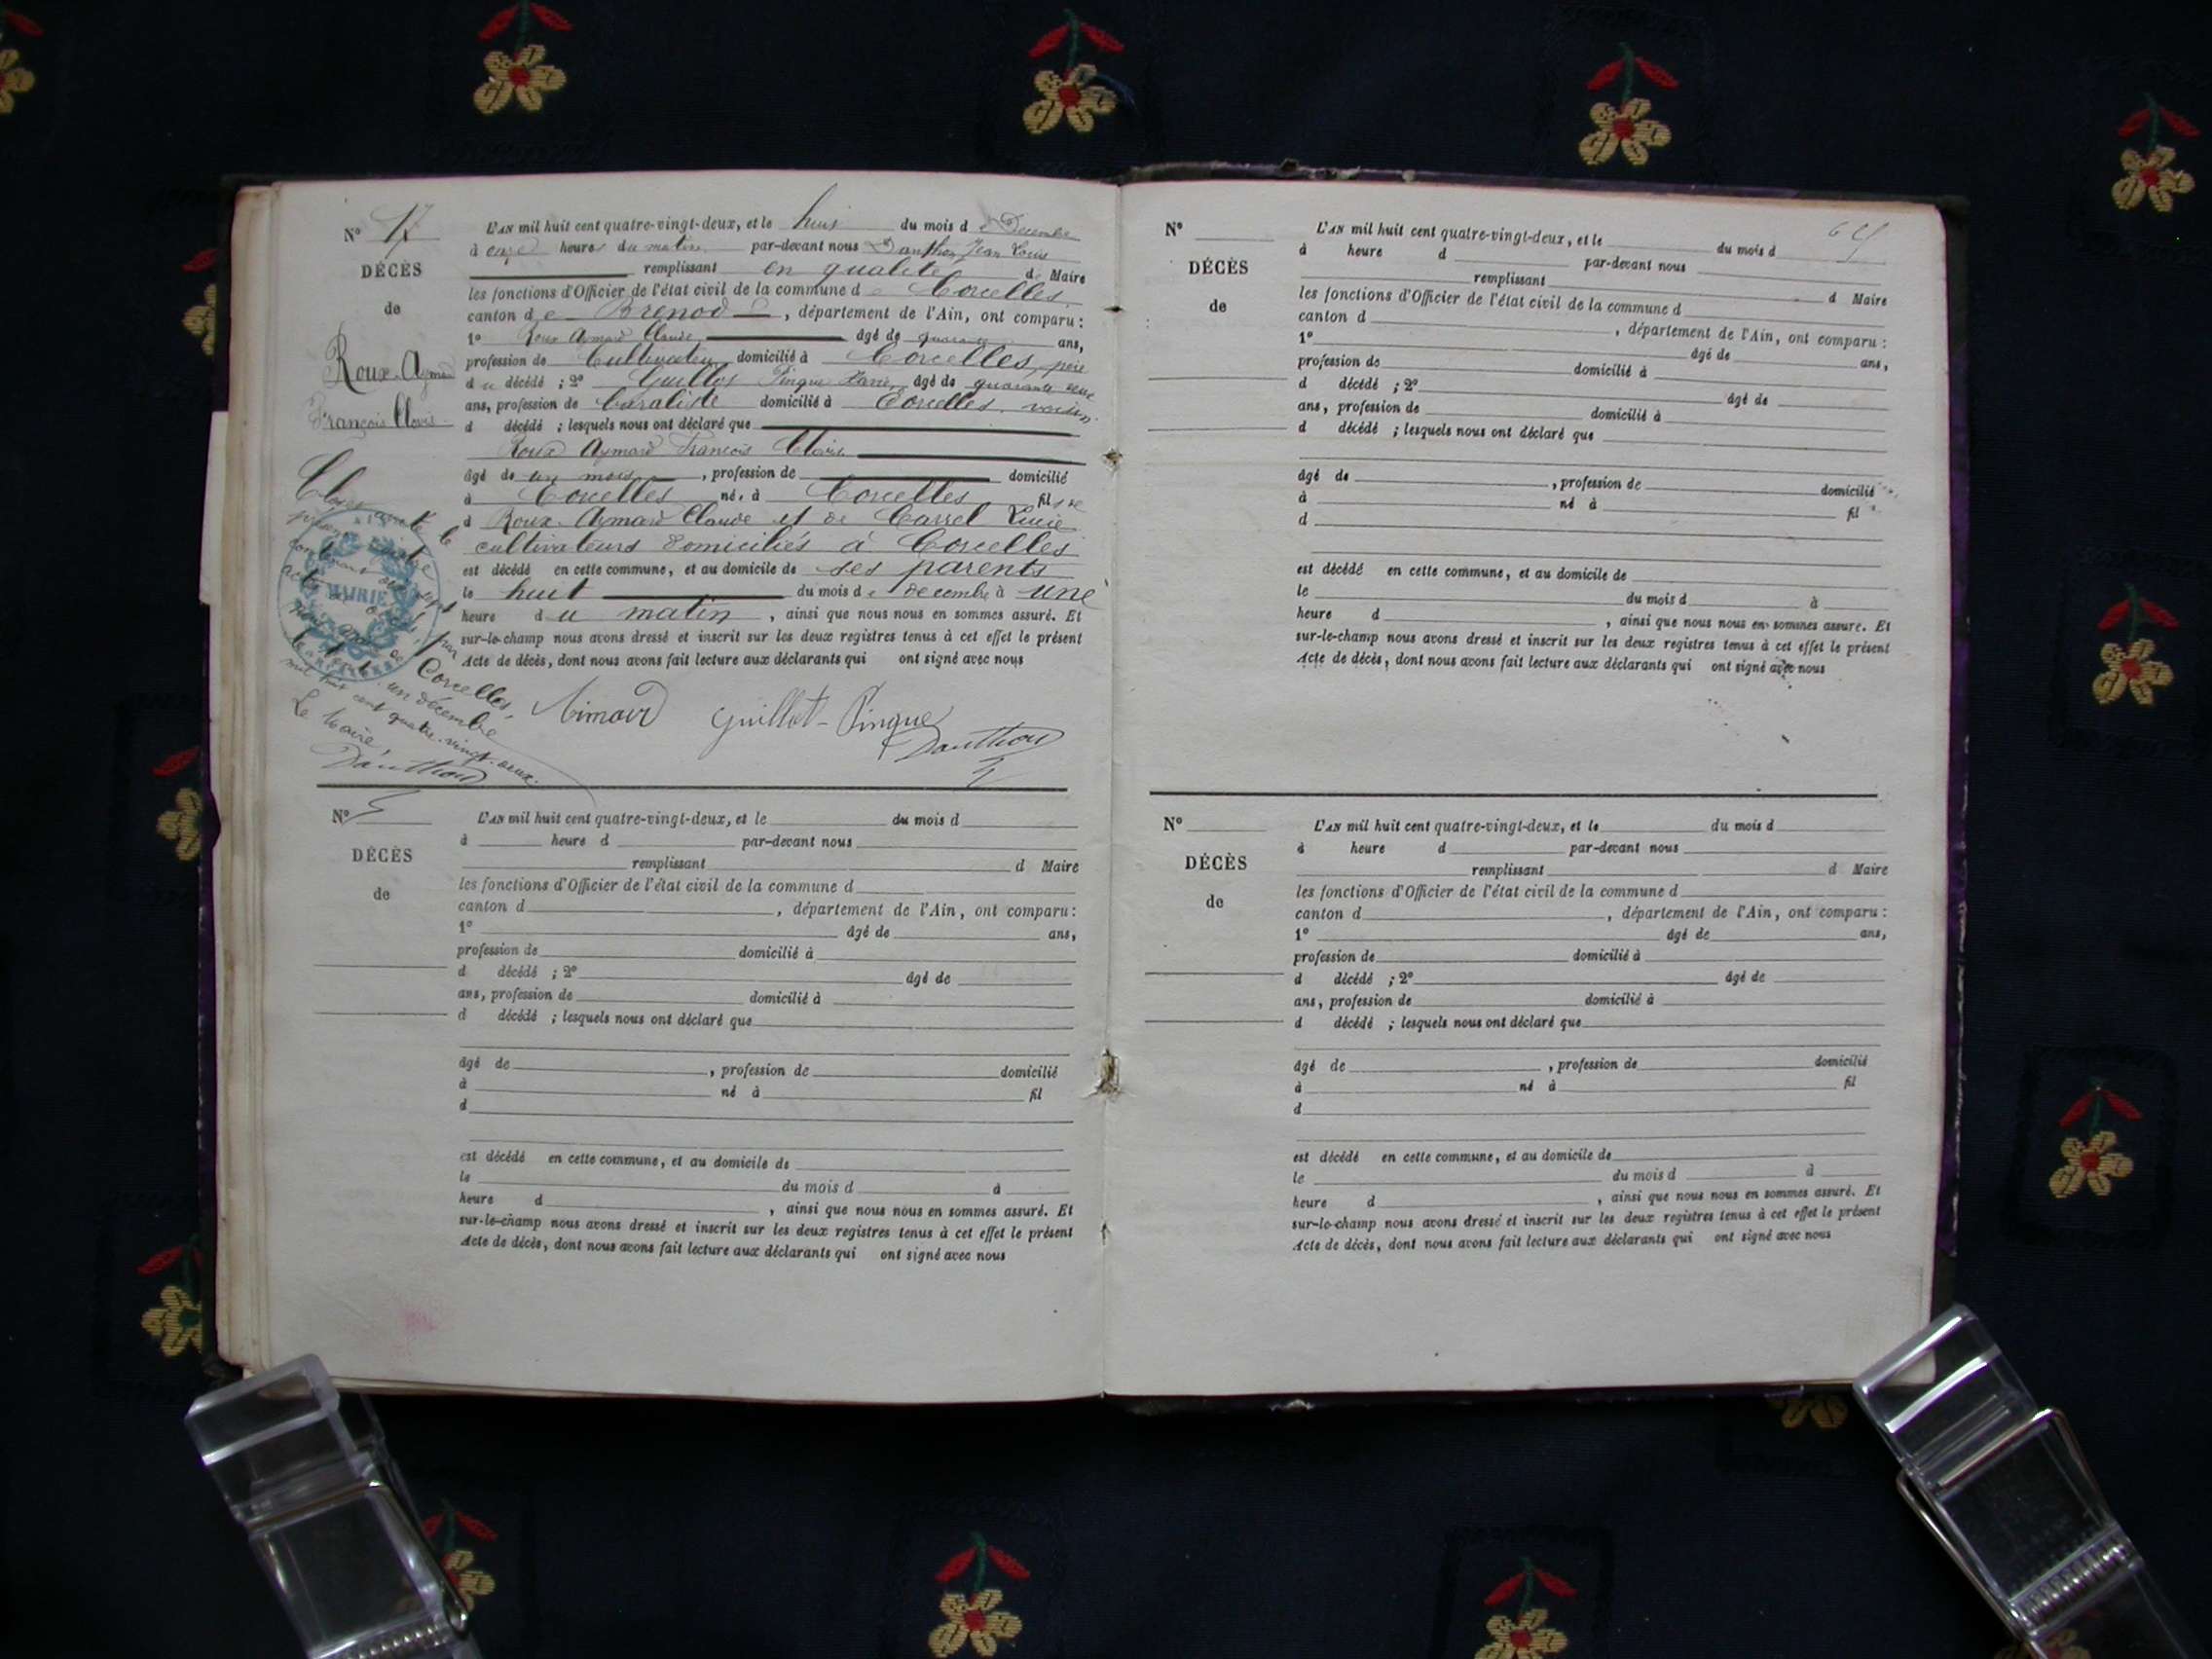 N° 17
DÉCÈS
de
Roux-Aymard
François Clovis
L'AN mil huit cent quatre-vingt-deux, et le huit du mois de Décembre
à onze heures du matin par-devant nous Danthon Jean Louis
remplissant en qualité de Maire
les fonctions d'Officier de l'état civil de la commune de Corcelles
canton de Brenod, département de l'Ain, ont comparu :
1° Roux Aymard Claude âgé de quarante ans,
profession de Cultivateur domicilié à Corcelles, père
du décédé ; 2° Guillot Pingue âgé de quarante
ans, profession de domicilié à Corcelles, voisin
d décédé ; lesquels nous ont déclaré que
Roux Aymard François Clovis
âgé de un mois, profession de domicilié
à Corcelles né à Corcelles fils
d Roux-Aymard Claude et de Carrel Lucie
cultivateurs domiciliés à Corcelles
est décédé en cette commune, et au domicile de ses parents
le huit du mois de décembre à une
heure du matin, ainsi que nous nous en sommes assuré. Et
sur-le-champ nous avons dressé et inscrit sur les deux registres tenus à cet effet le présent
Acte de décès, dont nous avons fait lecture aux déclarants qui ont signé avec nous
Aimard Guillot-Pingue
Danthon
MAIRIE
Corcelles,
un décembre
mil huit cent quatre-vingt-deux.
Le Maire,
Danthon
N°
DÉCÈS
de
L'AN mil huit cent quatre-vingt-deux, et le du mois d
à heure d par-devant nous
remplissant d Maire
les fonctions d'Officier de l'état civil de la commune d
canton d , département de l'Ain, ont comparu :
1° âgé de ans,
profession de domicilié à
d décédé ; 2° âgé de
ans, profession de domicilié à
d décédé ; lesquels nous ont déclaré que
âgé de , profession de domicilié
à né à fil
d
est décédé en cette commune, et au domicile de
le du mois d à
heure d , ainsi que nous nous en sommes assuré. Et
sur-le-champ nous avons dressé et inscrit sur les deux registres tenus à cet effet le présent
Acte de décès, dont nous avons fait lecture aux déclarants qui ont signé avec nous
N°
DÉCÈS
de
L'AN mil huit cent quatre-vingt-deux, et le du mois d
à heure d par-devant nous
remplissant d Maire
les fonctions d'Officier de l'état civil de la commune d
canton d , département de l'Ain, ont comparu :
1° âgé de ans,
profession de domicilié à
d décédé ; 2° âgé de
ans, profession de domicilié à
d décédé ; lesquels nous ont déclaré que
âgé de , profession de domicilié
à né à fil
d
est décédé en cette commune, et au domicile de
le du mois d à
heure d , ainsi que nous nous en sommes assuré. Et
sur-le-champ nous avons dressé et inscrit sur les deux registres tenus à cet effet le présent
Acte de décès, dont nous avons fait lecture aux déclarants qui ont signé avec nous
N°
DÉCÈS
de
L'AN mil huit cent quatre-vingt-deux, et le du mois d
à heure d par-devant nous
remplissant d Maire
les fonctions d'Officier de l'état civil de la commune d
canton d , département de l'Ain, ont comparu :
1° âgé de ans,
profession de domicilié à
d décédé ; 2° âgé de
ans, profession de domicilié à
d décédé ; lesquels nous ont déclaré que
âgé de , profession de domicilié
à né à fil
d
est décédé en cette commune, et au domicile de
le du mois d à
heure d , ainsi que nous nous en sommes assuré. Et
sur-le-champ nous avons dressé et inscrit sur les deux registres tenus à cet effet le présent
Acte de décès, dont nous avons fait lecture aux déclarants qui ont signé avec nous